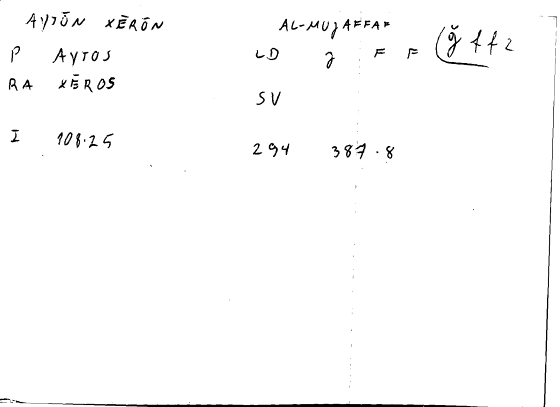 AYTŌN XĒRŌN AL-MUȝAFFAF
P AYTOS LD ȝ F F (ğ f f z
RA XĒROS
SV
I 108.25 294 387.8